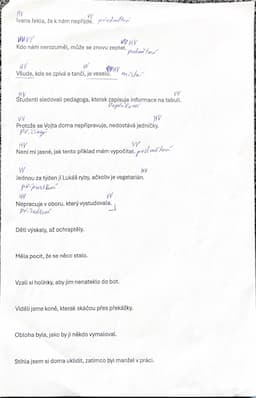 HV VV
Ivana řekla, že k nám nepřijde. předmětná
VV HV
Kdo nám nerozuměl, může se znovu zeptat. podmětná
HV VV HV
Všude, kde se zpívá a tančí, je veselo. místní
HV VV
Studenti sledovali pedagoga, kterak zapisuje informace na tabuli.
Doplňková
VV HV
Protože se Vojta doma nepřipravuje, nedostává jedničky.
HV VV
Není mi jasné, jak tento příklad mám vypočítat. podmětná
V HV
Jednou za týden jí Lukáš ryby, ačkoliv je vegetarián.
přípustková
HV VV
Nepracuje v oboru, který vystudovala.
Děti výskaly, až ochraptěly.
Měla pocit, že se něco stalo.
Vzali si holínky, aby jim nenateklo do bot.
Viděli jsme koně, kterak skáčou přes překážky.
Obloha byla, jako by ji někdo vymaloval.
Stihla jsem si doma uklidit, zatímco byl manžel v práci.